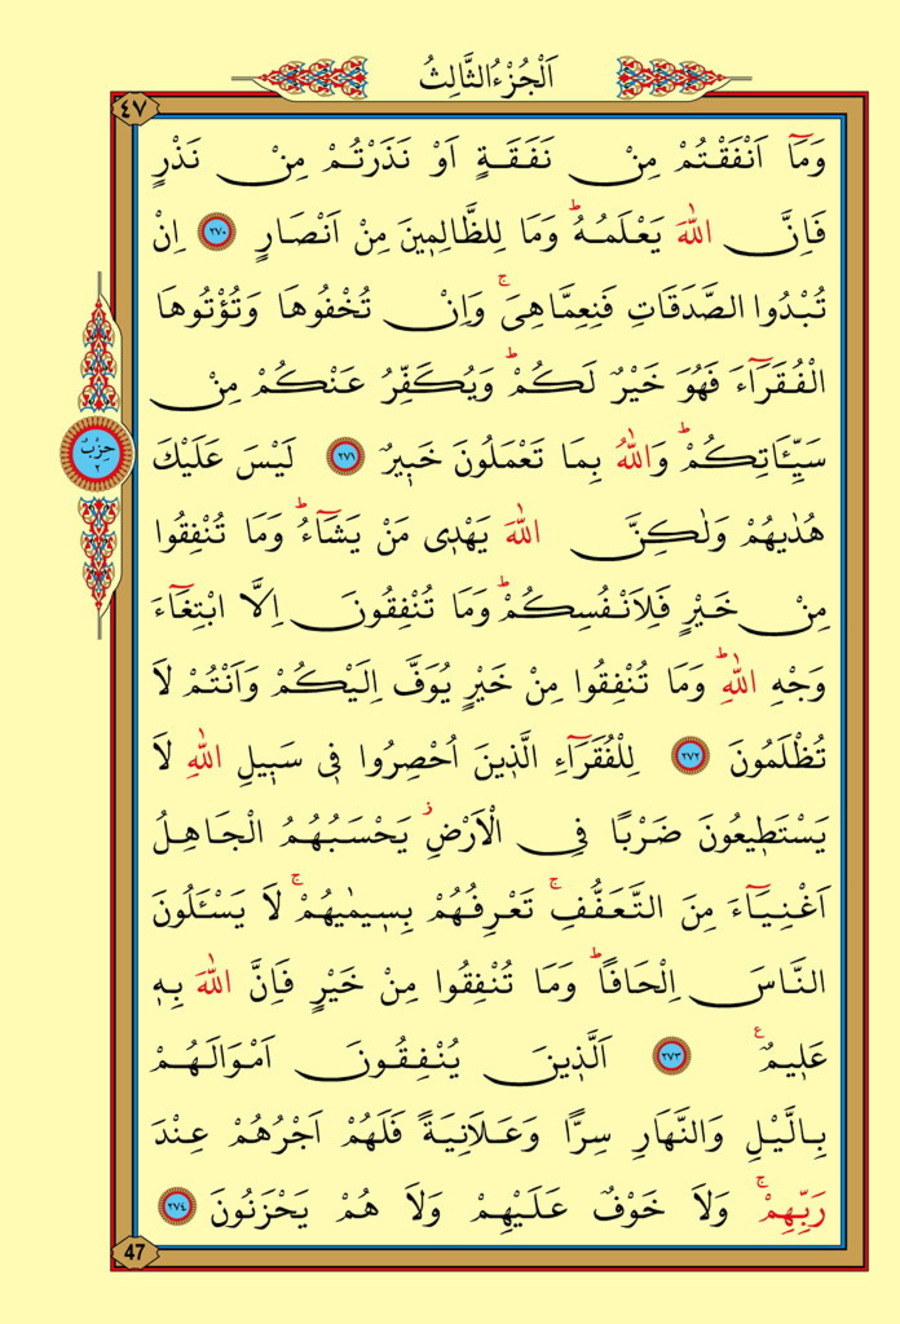 اَلْجُزْءُالثَّالِثُ
٤٧
وَمَٓا اَنْفَقْتُمْ مِنْ نَفَقَةٍ اَوْ نَذَرْتُمْ مِنْ نَذْرٍ
فَاِنَّ اللّٰهَ يَعْلَمُهُۜ وَمَا لِلظَّالِم۪ينَ مِنْ اَنْصَارٍ ٢٧٠ اِنْ
تُبْدُوا الصَّدَقَاتِ فَنِعِمَّاهِيَۚ وَاِنْ تُخْفُوهَا وَتُؤْتُوهَا
الْفُقَرَٓاءَ فَهُوَ خَيْرٌ لَكُمْۜ وَيُكَفِّرُ عَنْكُمْ مِنْ
سَيِّـَٔاتِكُمْۜ وَاللّٰهُ بِمَا تَعْمَلُونَ خَب۪يرٌ ٢٧١ لَيْسَ عَلَيْكَ
حِزْبٌ
٢
هُدٰيهُمْ وَلٰكِنَّ اللّٰهَ يَهْد۪ى مَنْ يَشَٓاءُۜ وَمَا تُنْفِقُوا
مِنْ خَيْرٍ فَلِاَنْفُسِكُمْۜ وَمَا تُنْفِقُونَ اِلَّا ابْتِغَٓاءَ
وَجْهِ اللّٰهِۜ وَمَا تُنْفِقُوا مِنْ خَيْرٍ يُوَفَّ اِلَيْكُمْ وَاَنْتُمْ لَا
تُظْلَمُونَ ٢٧٢ لِلْفُقَرَٓاءِ الَّذ۪ينَ اُحْصِرُوا ف۪ى سَب۪يلِ اللّٰهِ لَا
يَسْتَط۪يعُونَ ضَرْبًا فِي الْاَرْضِۘ يَحْسَبُهُمُ الْجَاهِلُ
اَغْنِيَٓاءَ مِنَ التَّعَفُّفِۚ تَعْرِفُهُمْ بِس۪يمٰيهُمْۚ لَا يَسْـَٔلُونَ
النَّاسَ اِلْحَافًاۜ وَمَا تُنْفِقُوا مِنْ خَيْرٍ فَاِنَّ اللّٰهَ بِه۪
عَل۪يمٌ ع ٢٧٣ اَلَّذ۪ينَ يُنْفِقُونَ اَمْوَالَهُمْ
بِالَّيْلِ وَالنَّهَارِ سِرًّا وَعَلَانِيَةً فَلَهُمْ اَجْرُهُمْ عِنْدَ
رَبِّهِمْۚ وَلَا خَوْفٌ عَلَيْهِمْ وَلَا هُمْ يَحْزَنُونَ ٢٧٤
47